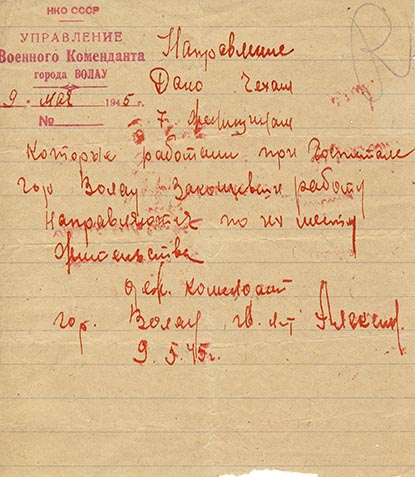 НКО СССР
УПРАВЛЕНИЕ
Военного Коменданта
города ВОЛАУ
9. мая 1945 г.
№
Направление
Дано Чехам
7.
Которые работали при Госпитале
гор Волау Закончевши работу
Направляются по их месту
Жительства
деж. комендант
гор. Волау гв. л-т
9.5.45г.